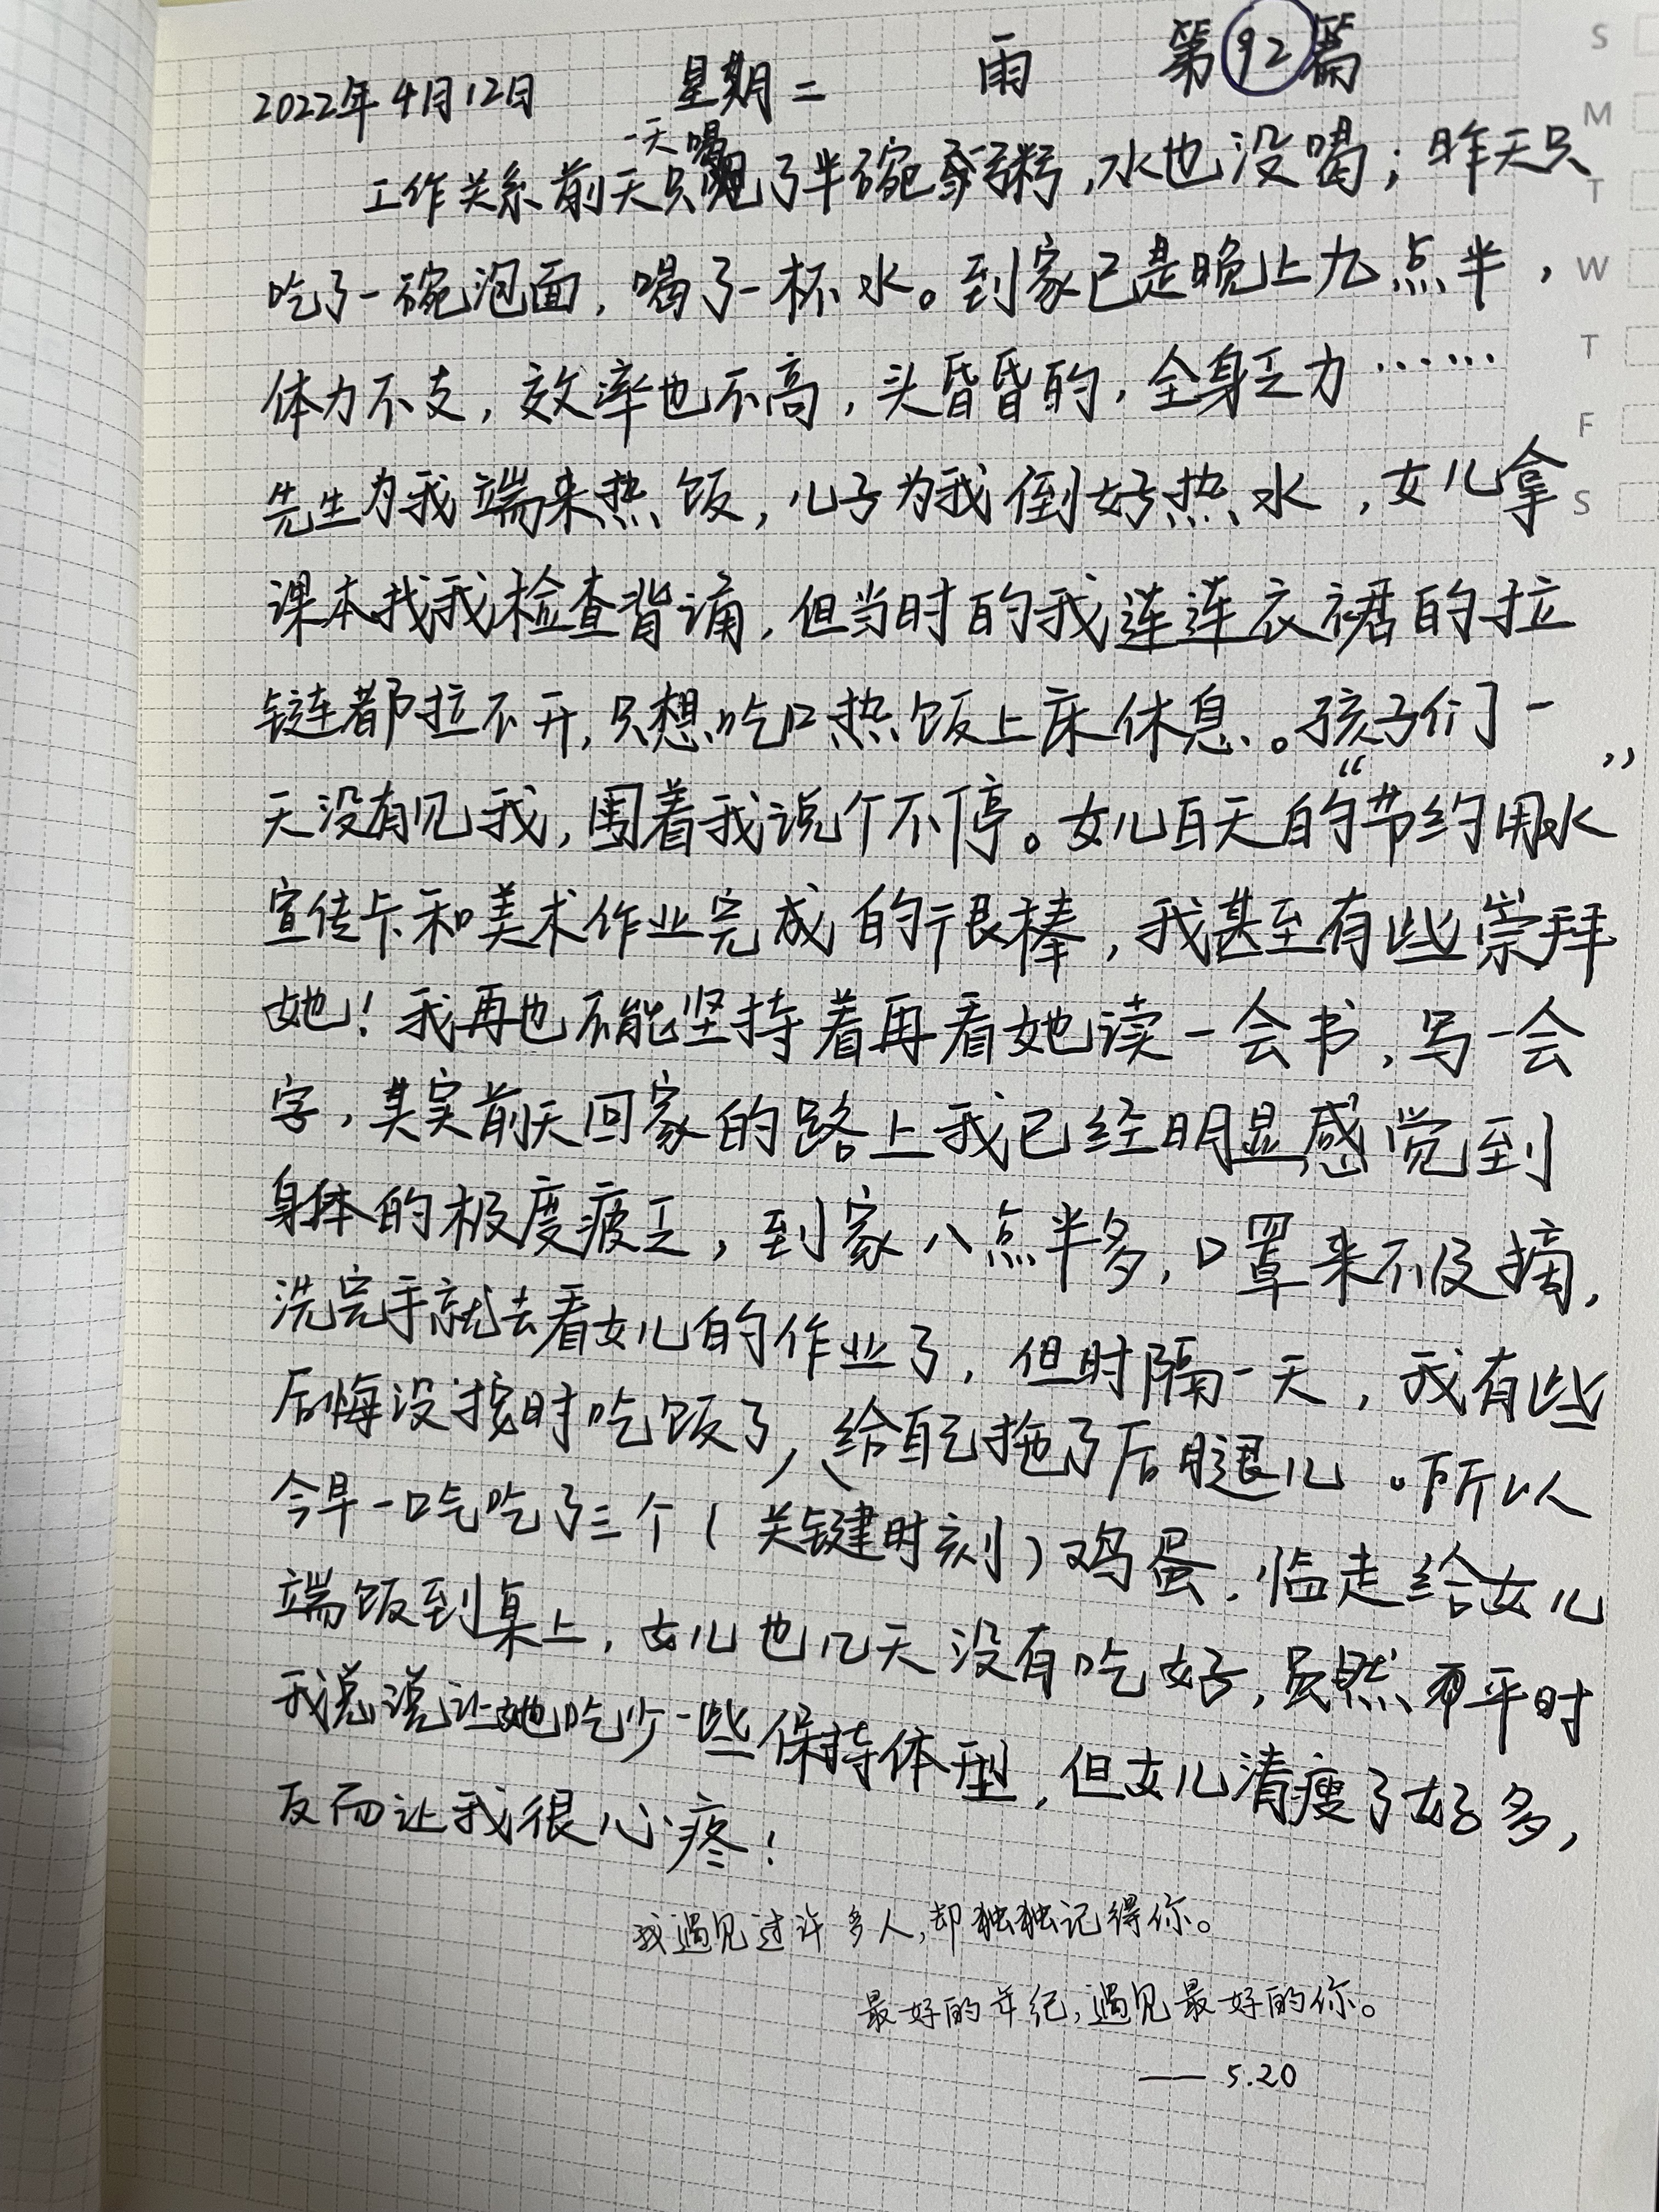 2022年4月12日 星期二 雨 第92篇
工作关系前天只一天喝了半碗粥,水也没喝;昨天只
吃了一碗泡面,喝了一杯水。到家已是晚上九点半,
体力不支,效率也不高,头昏昏的,全身乏力……
先生为我端来热饭,儿子为我倒好热水,女儿拿
课本找我检查背诵,但当时的我连连衣裙的拉
链都拉不开,只想吃口热饭上床休息。孩子们一
天没有见我,围着我说个不停。女儿白天的“节约用水”
宣传卡和美术作业完成的很棒,我甚至有些崇拜
她!我再也不能坚持着再看她读一会书,写一会
字,其实前天回家的路上我已经明显感觉到
身体的极度疲乏,到家八点半多,口罩来不及摘,
洗完手就去看女儿的作业了,但时隔一天,我有些
后悔没按时吃饭了,给自己拖了后腿儿。所以
今早一口气吃了三个(关键时刻)鸡蛋,临走给女儿
端饭到桌上,女儿也几天没有吃好,虽然平时
我总说让她吃少一些保持体型,但女儿清瘦了好多,
反而让我很心疼!
我遇见过许多人,却独独记得你。
最好的年纪,遇见最好的你。
—— 5.20
S
M
T
W
T
F
S